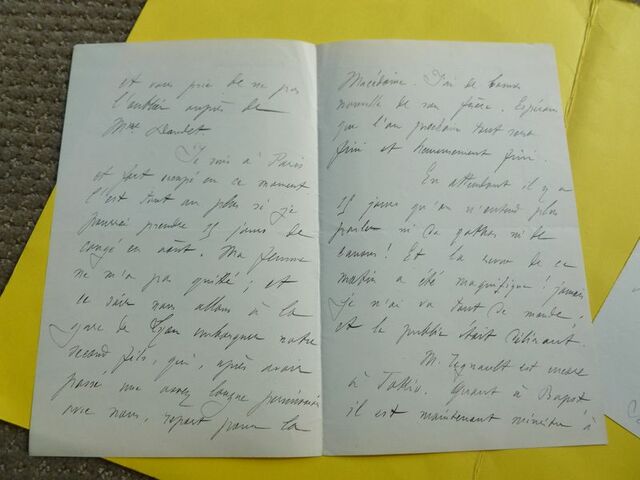 et vous prie de ne pas
l'oublier auprès de
Mme Daudet
Je suis à Paris
et fort occupé en ce moment
C'est tout au plus si je
pourrai prendre 15 jours de
congé en août. Ma femme
ne m'a pas quitté ; et
ce soir nous allons à la
gare de Lyon embarquer notre
second fils, qui, après avoir
passé une assez longue permission
avec nous, repart pour la
Macédoine. J'ai de bonnes
nouvelles de son frère. Espérons
que l'an prochain tout sera
fini et heureusement fini.
En attendant il y a
15 jours qu'on n'entend plus
parler ni de gothas ni de
canons ! Et la revue de ce
matin a été magnifique ! jamais
je n'ai vu tant de monde,
et le public était délirant.
M. Regnault est encore
à Tokio. Quant à Bapst
il est maintenant ministre à